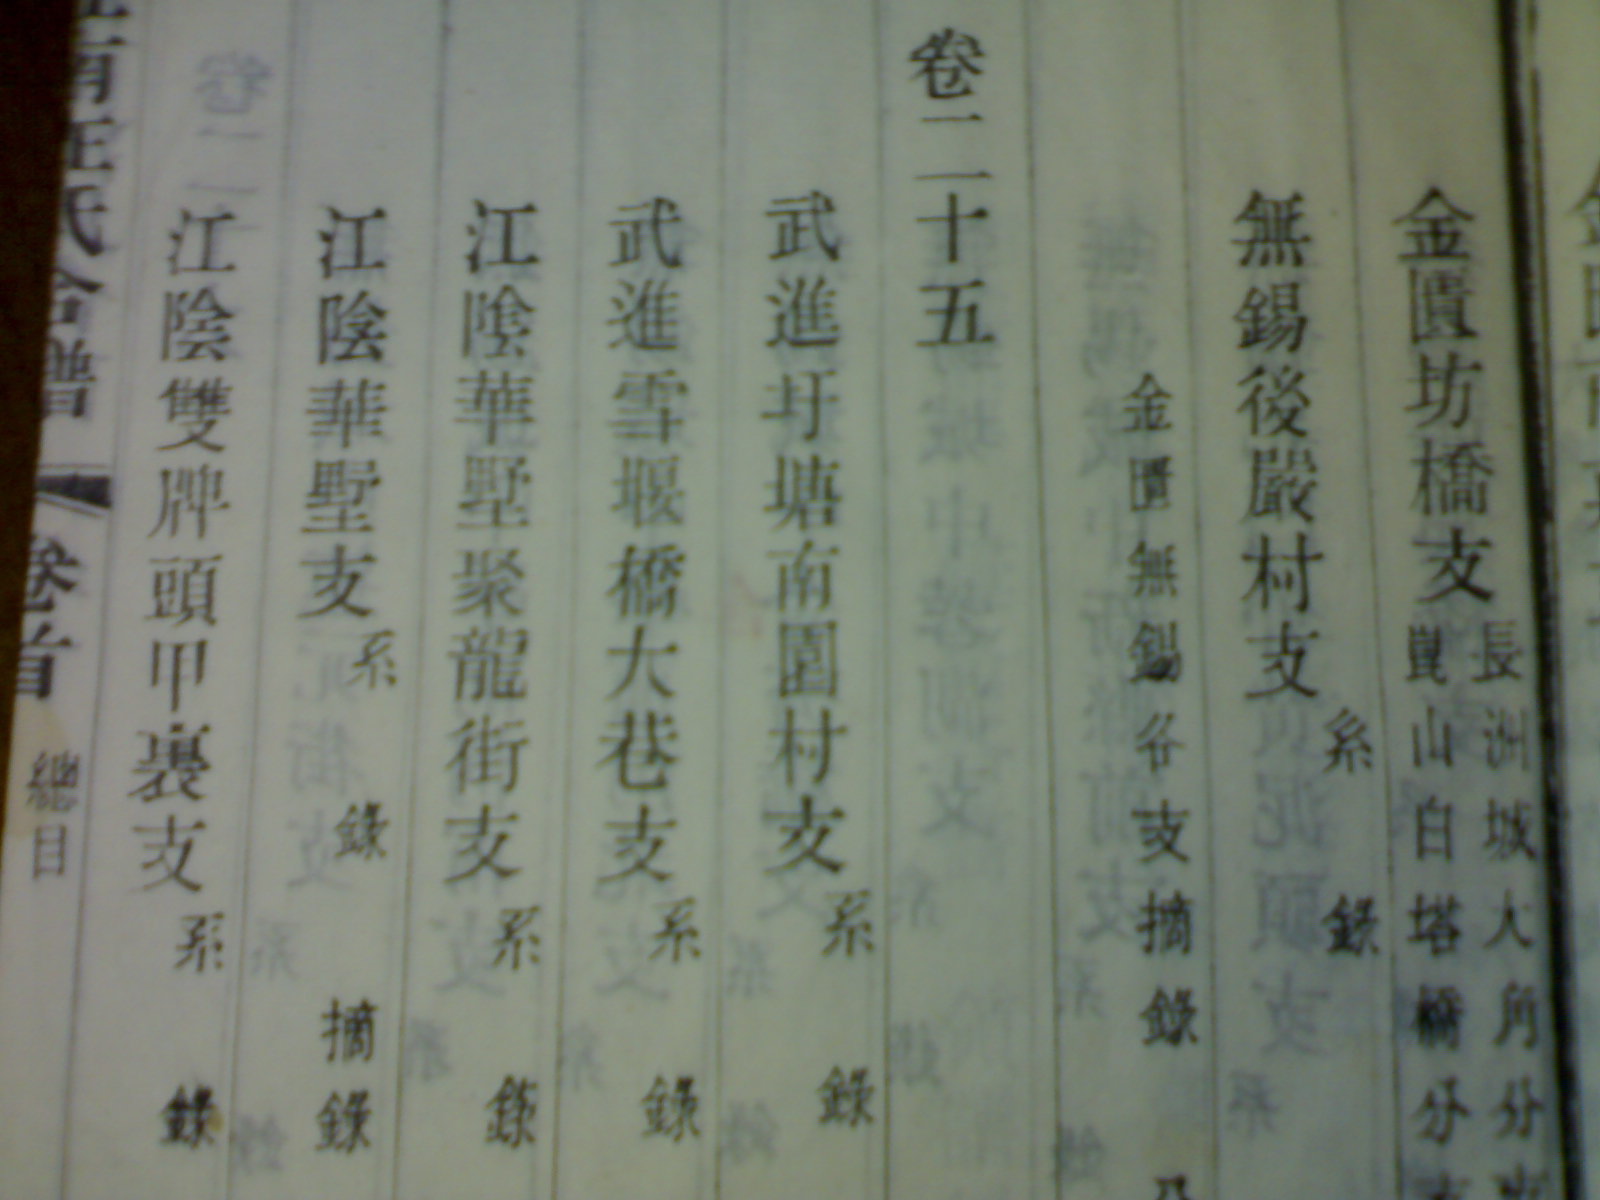 金匱坊橋支
長洲城大角分
崑山白塔橋分
無錫後嚴村支 系 錄
金匱無錫各支摘錄
卷二十五
武進圩塘南園村支 系 錄
武進雪堰橋大巷支 系 錄
江陰華墅聚龍街支 系 錄
江陰華墅支 系 錄 摘錄
江陰雙牌頭甲裏支 系 錄
汪氏合譜 卷首 總目